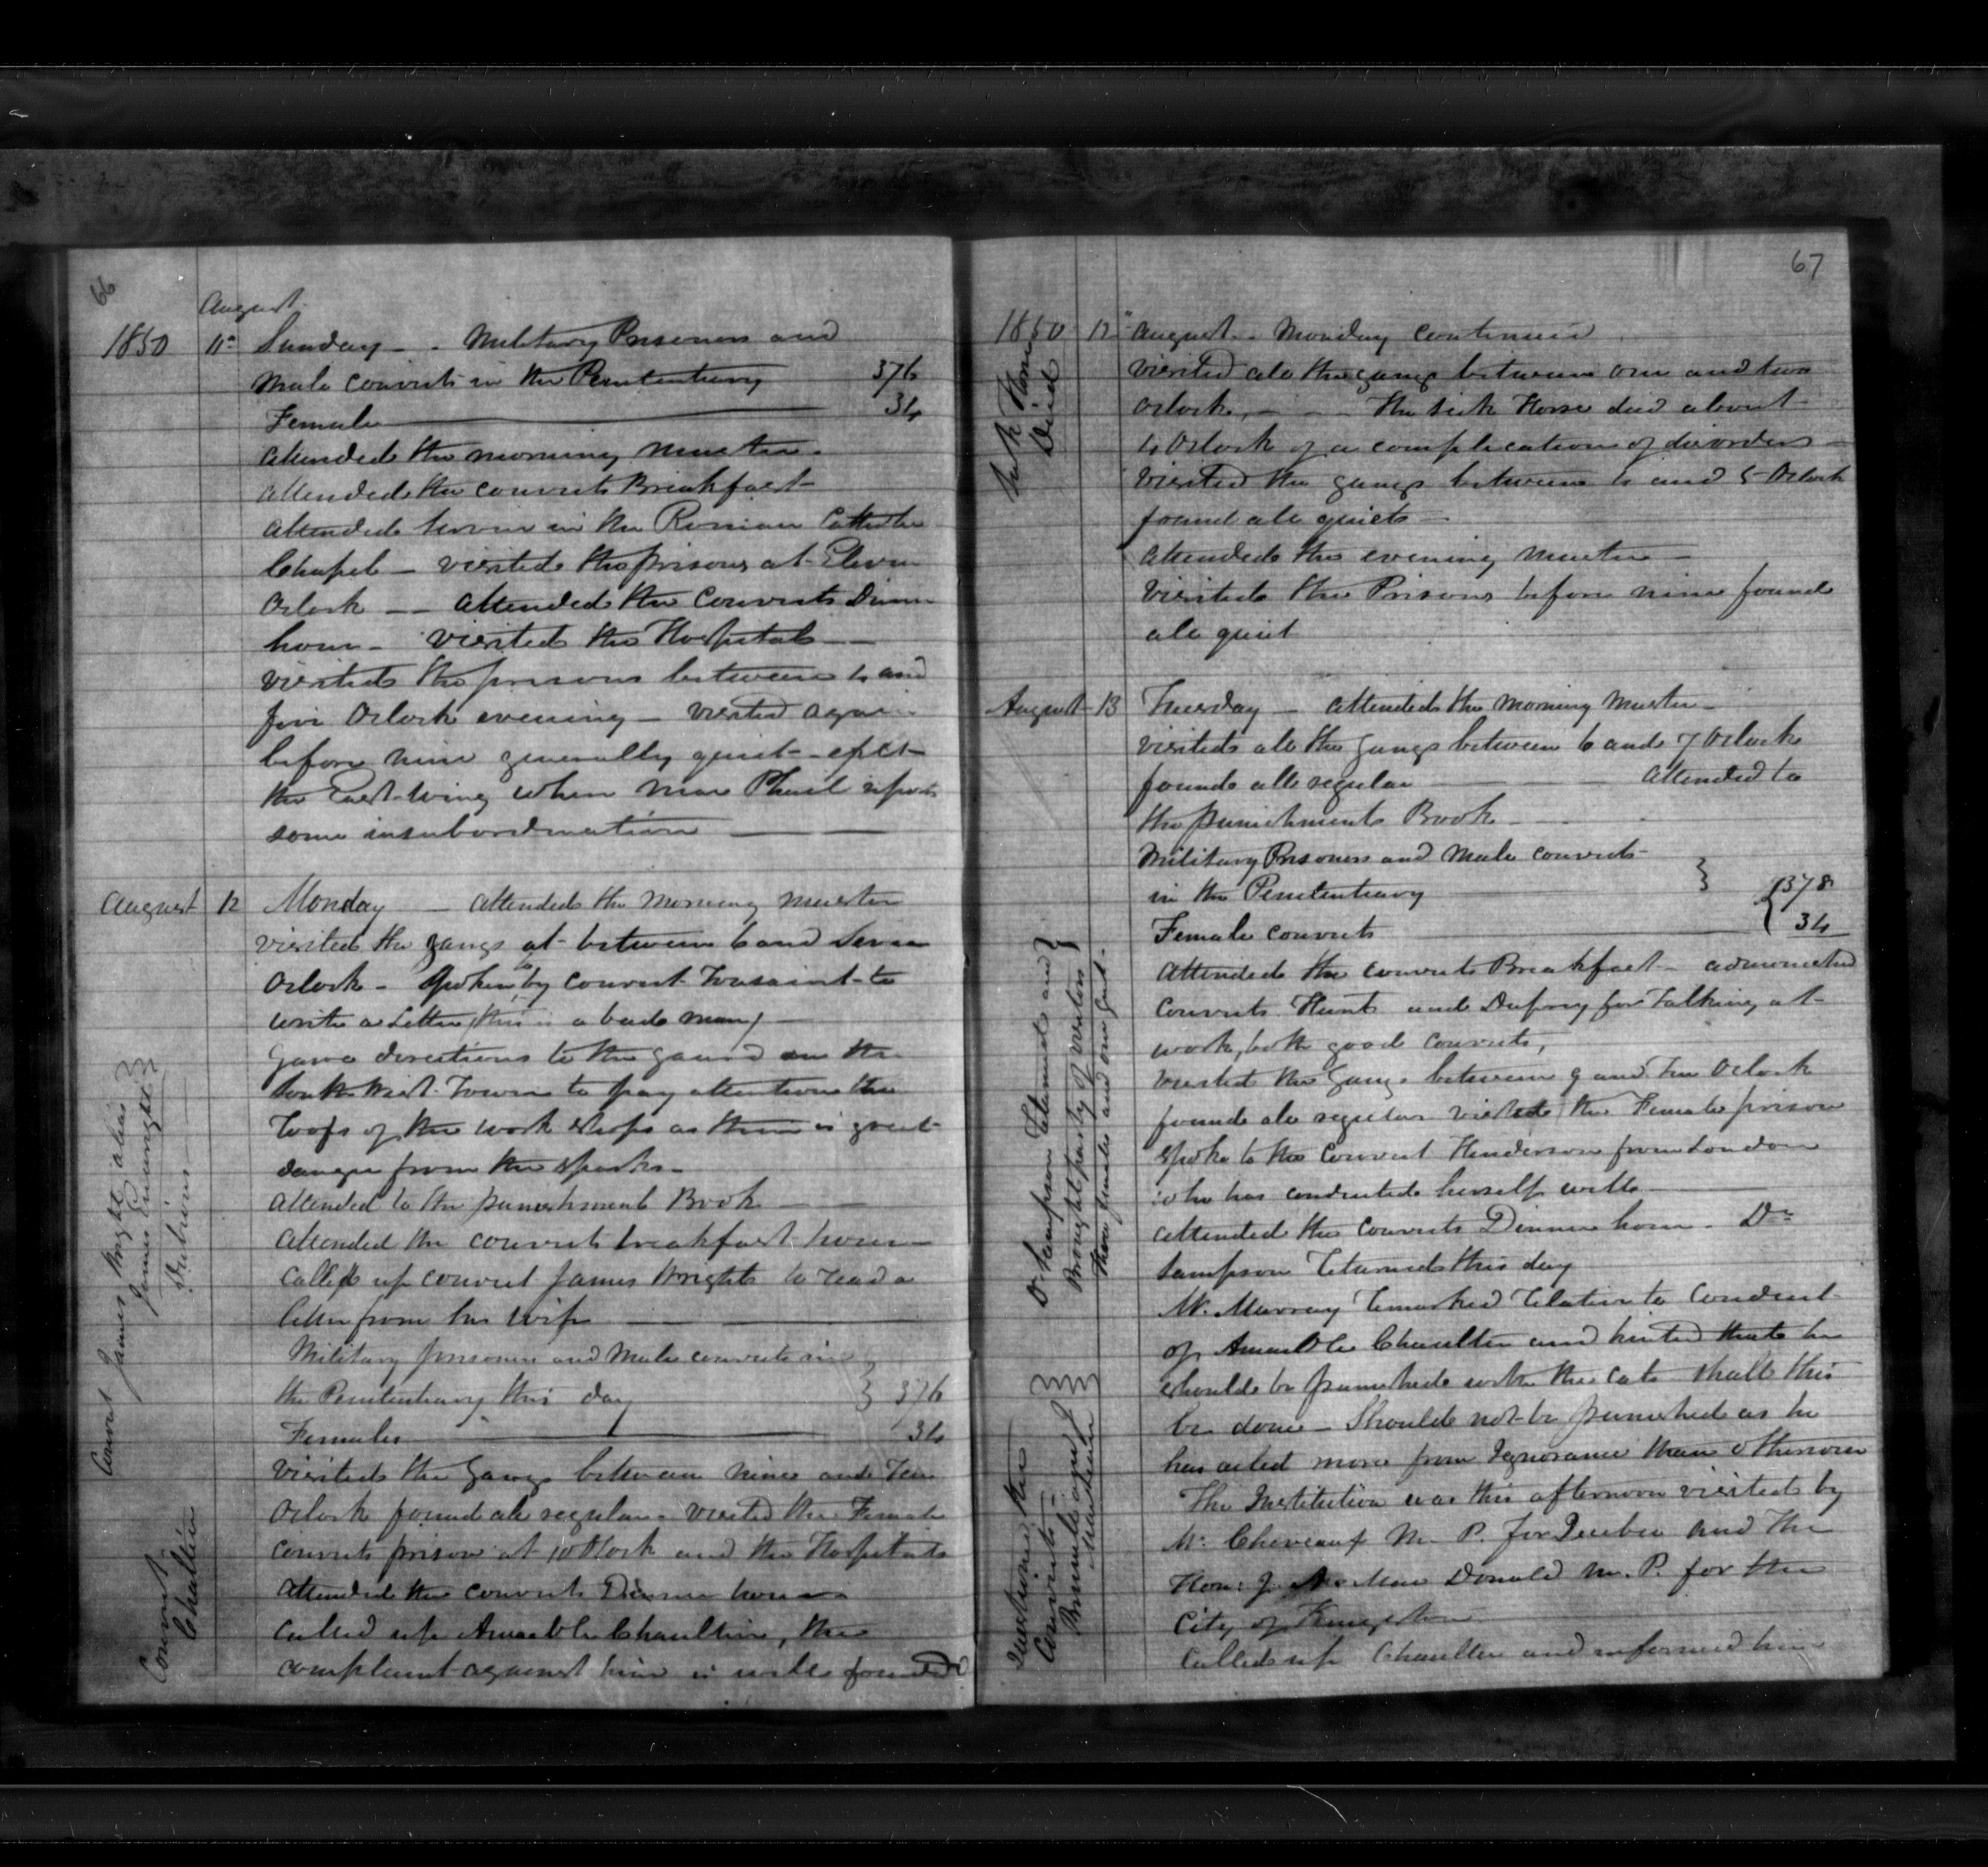 66
August
1850 11th Sunday - - Military Prisoners and
male convicts in the Penitentiary 376
Female 34
attended the morning muster -
attended the convicts Breakfast -
attended hour in the Roman Catholic
Chapel - visited the prisons at Eleven
Oclock - - attended the Convicts Dinner
hour - visited the Hospital -
visited the prisons between 4 and
five Oclock evening - visited again
before nine generally quiet - exct
the East wing when Mac Phail reports
some insubordination
August 12 Monday - attended the morning muster
visited the gangs at between 6 and Seven
Oclock - Spoken to by convict Tousaint to
write a Letter (this is a bad man) -
Gave directions to the guard on the
South West Tower to pay attention the
Roofs of the work shops as there is great
danger from the sparks -
attended to the punishment Book -
attended the convicts breakfast hour -
Called up convict James Wright to read a
letter from his wife
Military prisoners and Male convicts in
the Penitentiary this day 376
Females 34
visited the Gangs between nine and Ten
Oclock found all regular - visited the Female
convicts prison at 10 Oclock and the Hospitals
attended the convicts Dinner hour -
called up Amable Chaultier, the
complaint against him is well founded
Convict James Wright alias
James Enwright
Dubious
Convict
Chaltier
67
1850 12" August - Monday continued
visited all the gangs between one and two
Oclock, - - The sick Horse died about
4 Oclock of a complication of disorders -
visited the gangs between 4 and 5 Oclock
found all quiet -
attended the evening muster -
visited the Prisons before nine found
all quiet
Horse
Died
August 13 Tuesday - attended the morning muster -
visited all the gangs between 6 and 7 Oclock
found all regular attended to
the punishment Book - -
Military Prisoners and Male convicts
in the Penitentiary 378
Female convicts 34
attended the convicts Breakfast - admonished
convicts Hunt and Dupuy for Talking at
work, both good convicts,
visited the Gangs between 9 and Ten Oclock
found all regular visited the Female prison
spoke to the Convict Henderson from London
who has conducted herself well
attended the convicts Dinner hour - Dr
Sampson returned this day
Mr. Murray remarked relative to Conduct
of Amable Chaultier and hinted that he
should be punished with the cats shall this
be done - Should not be punished as he
has acted more from Ignorance than otherwise
The Institution was this afternoon visited by
Mr. M. P. for Quebec and The
Hon: J. A. Mac Donald M. P. for the
City of Kingston
Called up Chaultier and informed him
Dr Sampson returned and
Brought party of visitors
three females and one gent -
Convicts